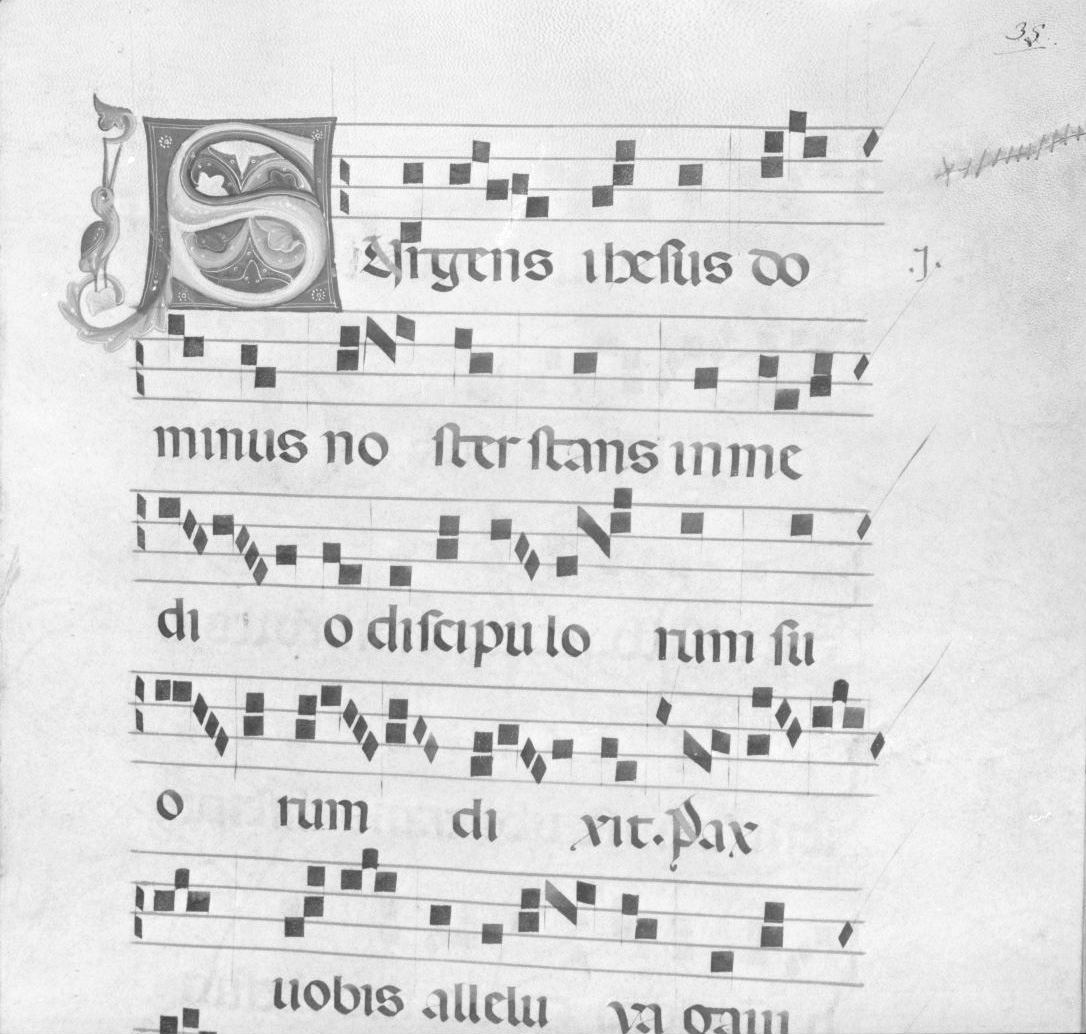 35.
SUrgens ihesus do
.J.
minus no ster stans in me
di o discipu lo rum su
o rum di xit. Pax
uobis allelu ya gaui